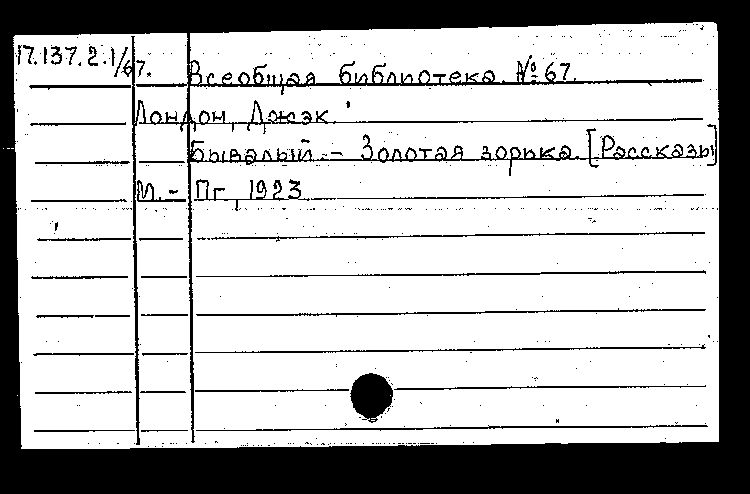 17.137.2.1/67. Всеобщая библиотека. № 67.
Лондон, Джэк.
Бывалый. - Золотая зорька. [Рассказы]
М. - Пг, 1923